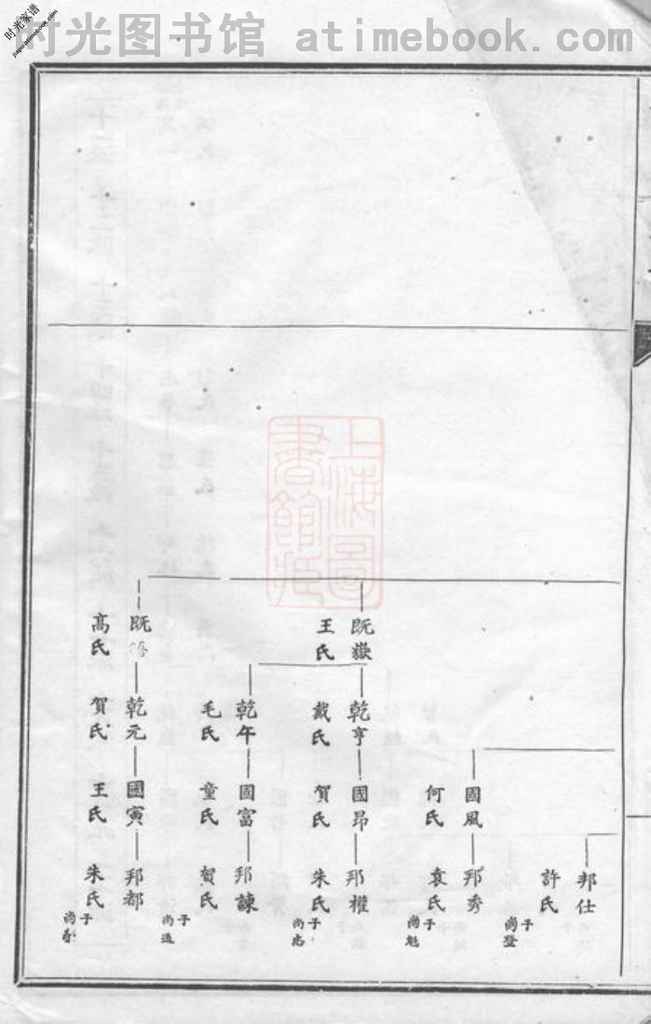 时光图书馆 atimebook.com
时光家谱
上海圖書館藏
邦仕
許氏
子尚登
國風
何氏
邦秀
袁氏
子尚魁
既嶽
王氏
乾亨
戴氏
國昂
賀氏
邦權
朱氏
子尚志
乾午
毛氏
國富
童氏
邦諫
賀氏
子尚進
既
高氏
乾元
賀氏
國寅
王氏
邦都
朱氏
子尚